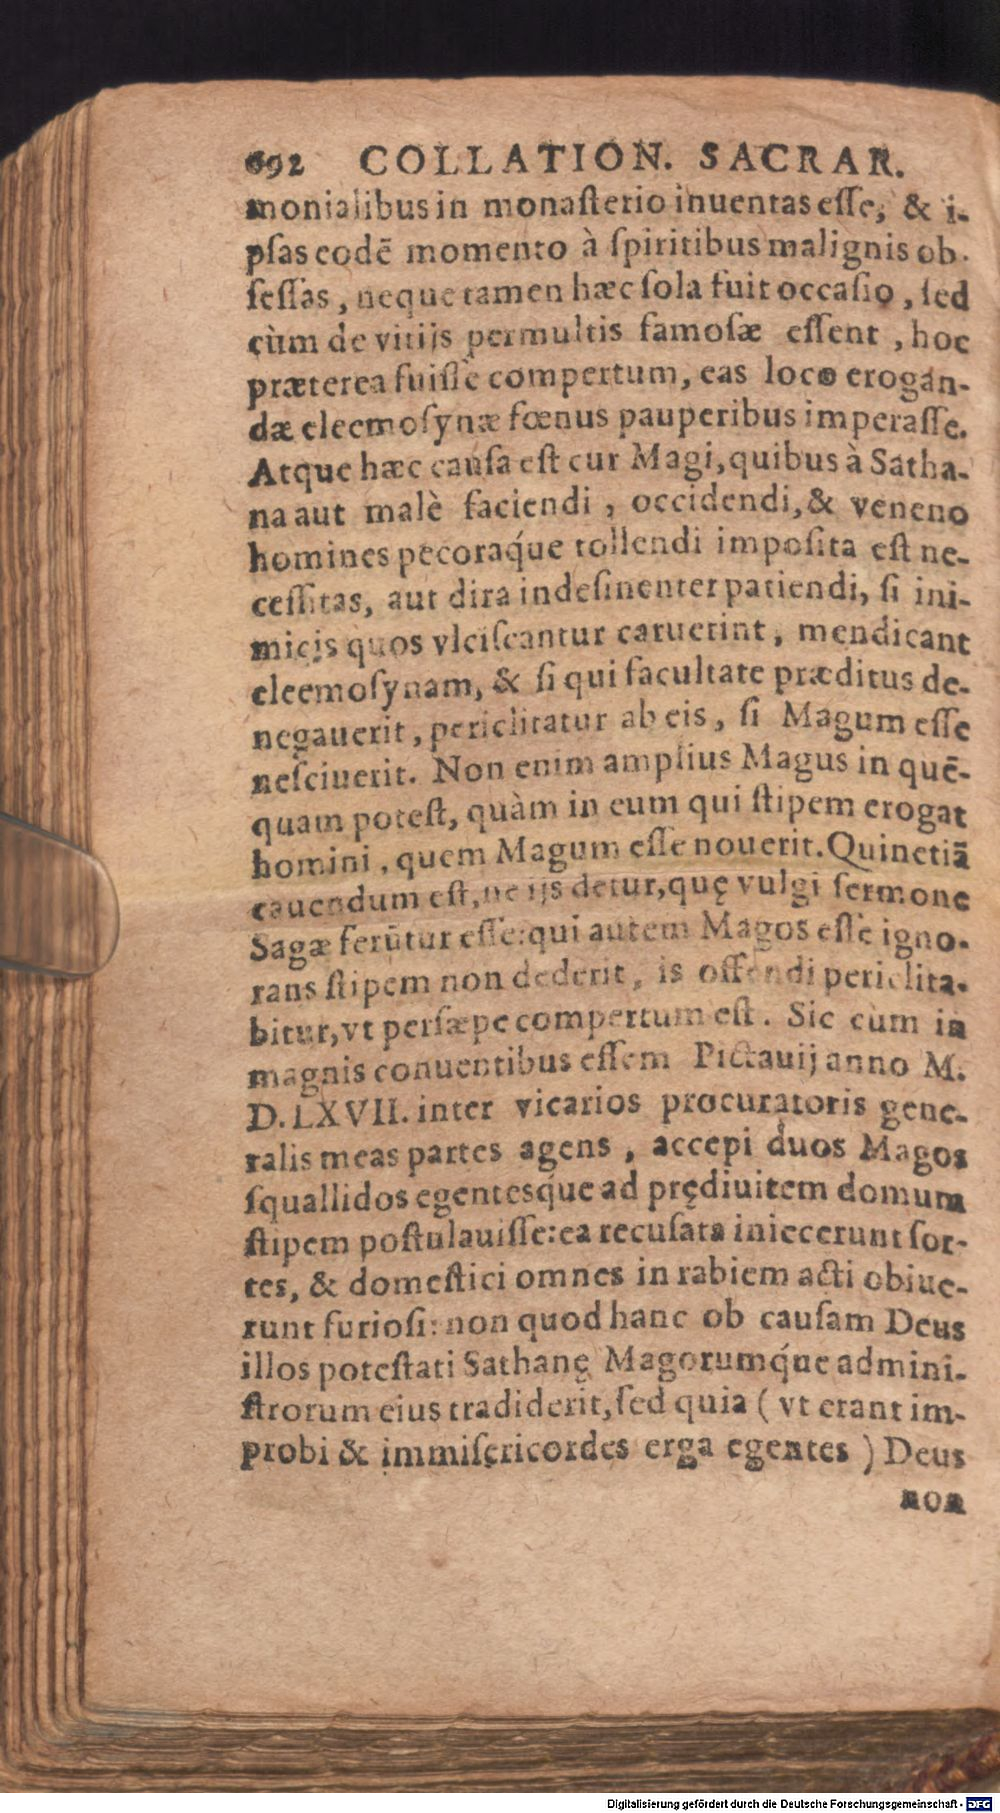 692 COLLATION. SACRAR.
monialibus in monaſterio inuentas eſſe, & i-
pſas eodē momento à ſpiritibus malignis ob-
ſeſſas, neque tamen hæc ſola fuit occaſio, ſed
cùm de vitijs permultis famoſæ eſſent, hoc
præterea fuiſſe compertum, eas loco erogan-
dæ eleemoſynæ fœnus pauperibus imperaſſe.
Atque hæc cauſa eſt cur Magi, quibus à Satha-
na aut malè faciendi, occidendi, & veneno
homines pecoraq́ue tollendi impoſita eſt ne-
ceſſitas, aut dira indeſinenter patiendi, ſi ini-
micis quos vlciſcantur caruerint, mendicant
eleemoſynam, & ſi qui facultate præditus de-
negauerit, periclitatur ab eis, ſi Magum eſſe
neſciuerit. Non enim amplius Magus in quē-
quam poteſt, quàm in eum qui ſtipem erogat
homini, quem Magum eſſe nouerit. Quinetiā
cauendum eſt, ne ijs detur, quę vulgi ſermone
Sagæ ferūtur eſſe: qui autem Magos eſſe igno-
rans ſtipem non dederit, is offendi periclita-
bitur, vt perſæpe compertum eſt. Sic cùm in
magnis conuentibus eſſem Pictauij anno M.
D. LXVII. inter vicarios procuratoris gene-
ralis meas partes agens, accepi duos Magos
ſquallidos egentesq́ue ad prędiuitem domum
ſtipem poſtulauiſſe: ea recuſata iniecerunt ſor-
tes, & domeſtici omnes in rabiem acti obiue-
runt furioſi: non quod hanc ob cauſam Deus
illos poteſtati Sathanę Magorumq́ue admini-
ſtrorum eius tradiderit, ſed quia ( vt erant im-
probi & immiſericordes erga egentes ) Deus
non
Digitalisierung gefördert durch die Deutsche Forschungsgemeinschaft - DFG